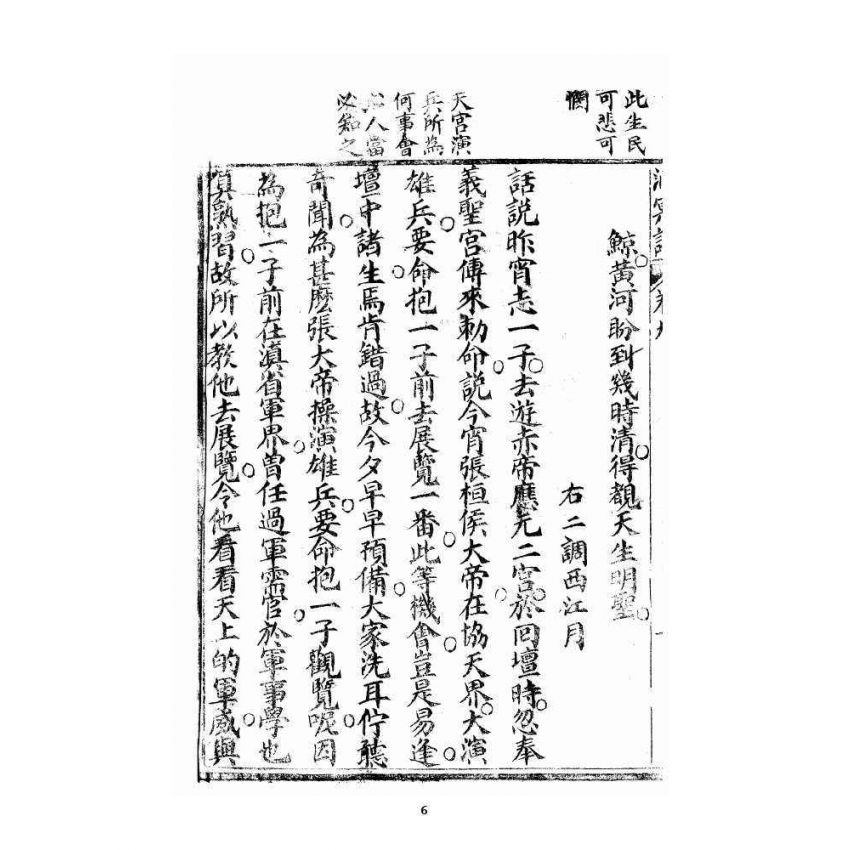 此生民
可悲可
憫
天宮演
兵所為
何事會
人當
必知之
鯨黃河盼到幾時清得覩天生明聖
右二調西江月
話說昨宵志一子去遊赤帝應元二宮於回壇時忽奉
義聖宮傳來勅命說今宵張桓侯大帝在協天界大演
雄兵要命抱一子前去展覽一番此等機會豈是易逢
壇中諸生焉肯錯過故今夕早早預備大家洗耳佇聽
奇聞為甚麼張大帝操演雄兵要命抱一子觀覽呢因
為抱一子前在滇省軍界曾任過軍需官於軍事學也
真熟習故所以教他去展覽令他看看天上的軍威與
6